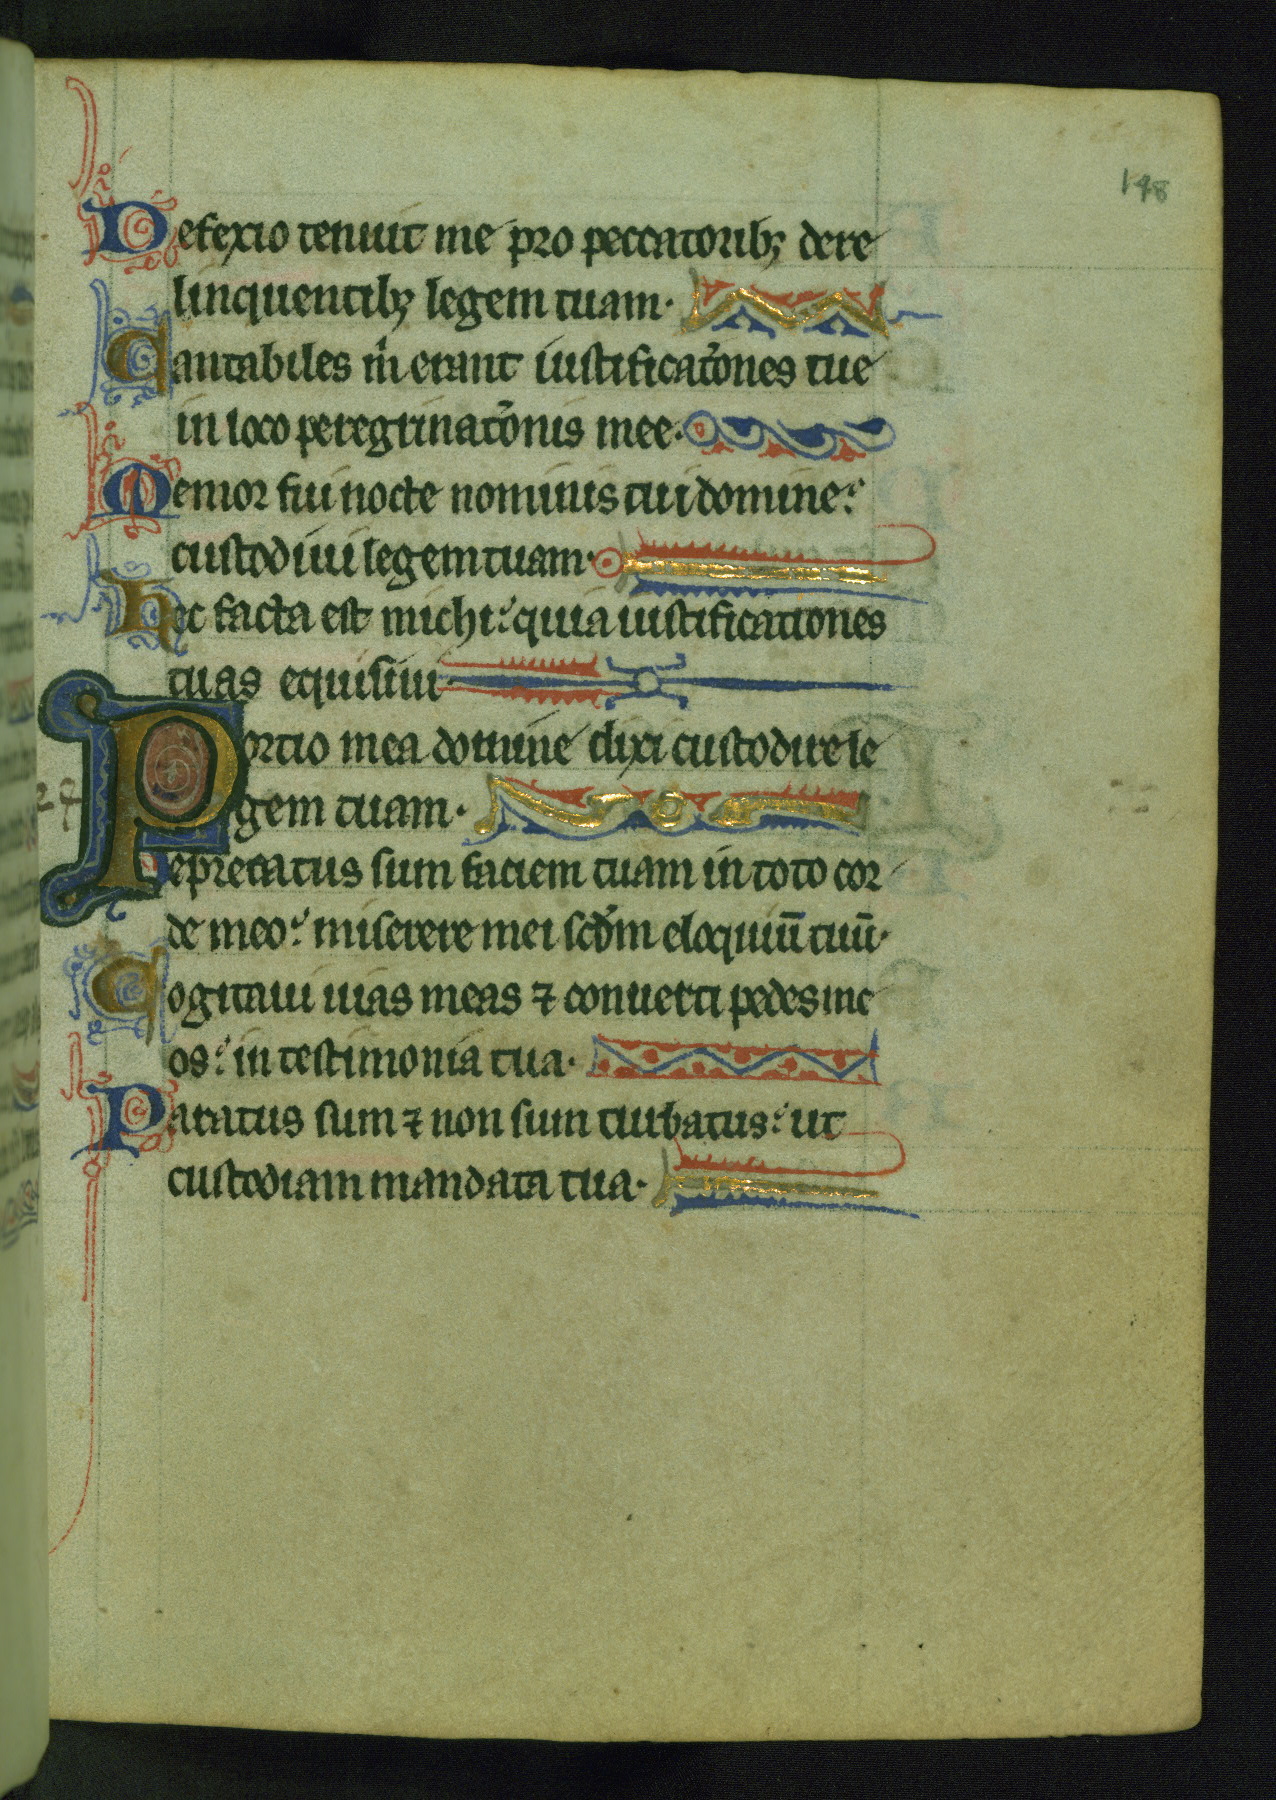 148
Defexio tenuit me pro peccatoribꝫ dere
linquentibꝫ legem tuam·
Cantabiles m̍ erant iustificat̉ones tue
in loco peregrinat̉onis mee·
Memor fui nocte nominis tui domine:
custodiui legem tuam·
Hec facta est michi: quia iustificationes
tuas exquisiui·
Portio mea domine dixi custodire le
gem tuam·
Deprecatus sum faciem tuam in toto cor
de meo: miserere mei scd̉m eloquiū tuū·
Cogitaui uias meas ⁊ conuerti pedes me
os: in testimonia tua·
Paratus sum ⁊ non sum turbatus: ut
custodiam mandata tua·